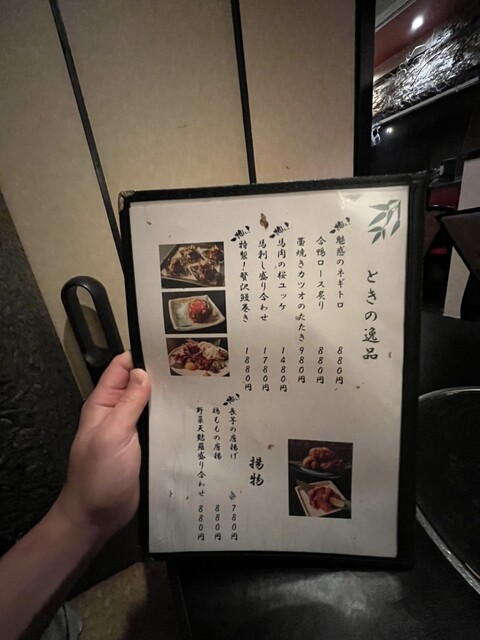 ときの逸品
魅惑のネギトロ 880円
合鴨ロース炙り 880円
藁焼きカツオのたたき 980円
馬肉の桜ユッケ 1480円
馬刺し盛り合わせ 1780円
特製!贅沢鰻巻き 1880円
揚物
長芋の唐揚げ 780円
鶏ももの唐揚 880円
野菜天麩羅盛り合わせ 880円